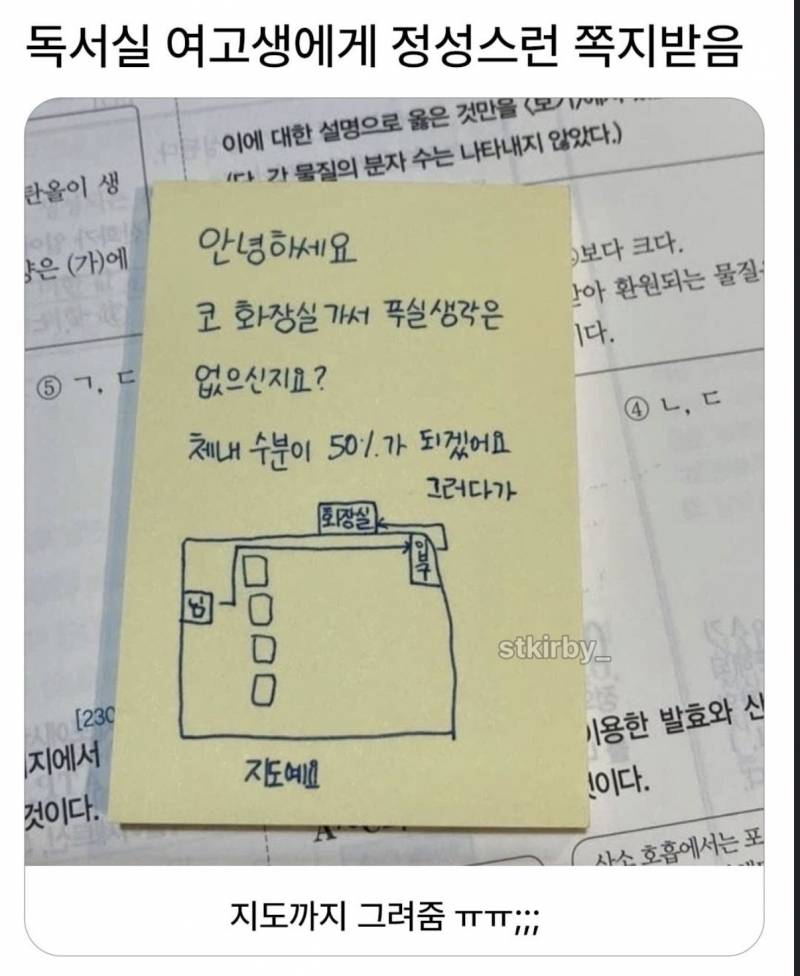 독서실 여고생에게 정성스런 쪽지받음
이에 대한 설명으로 옳은 것만을
(단, 각 물질의 분자 수는 나타내지 않았다.)
탄올이 생
양은 (가)에
보다 크다.
환원되는 물질
이다.
⑤ ㄱ, ㄷ
④ ㄴ, ㄷ
안녕하세요
코 화장실가서 푹실생각은
없으신지요?
체내 수분이 50%가 되겠어요
그러다가
화장실
입구
님
지도예요
stkirby_
[230
지에서
것이다.
이용한 발효와 산
것이다.
산소 호흡에서는 포
지도까지 그려줌 ㅠㅠ;;;